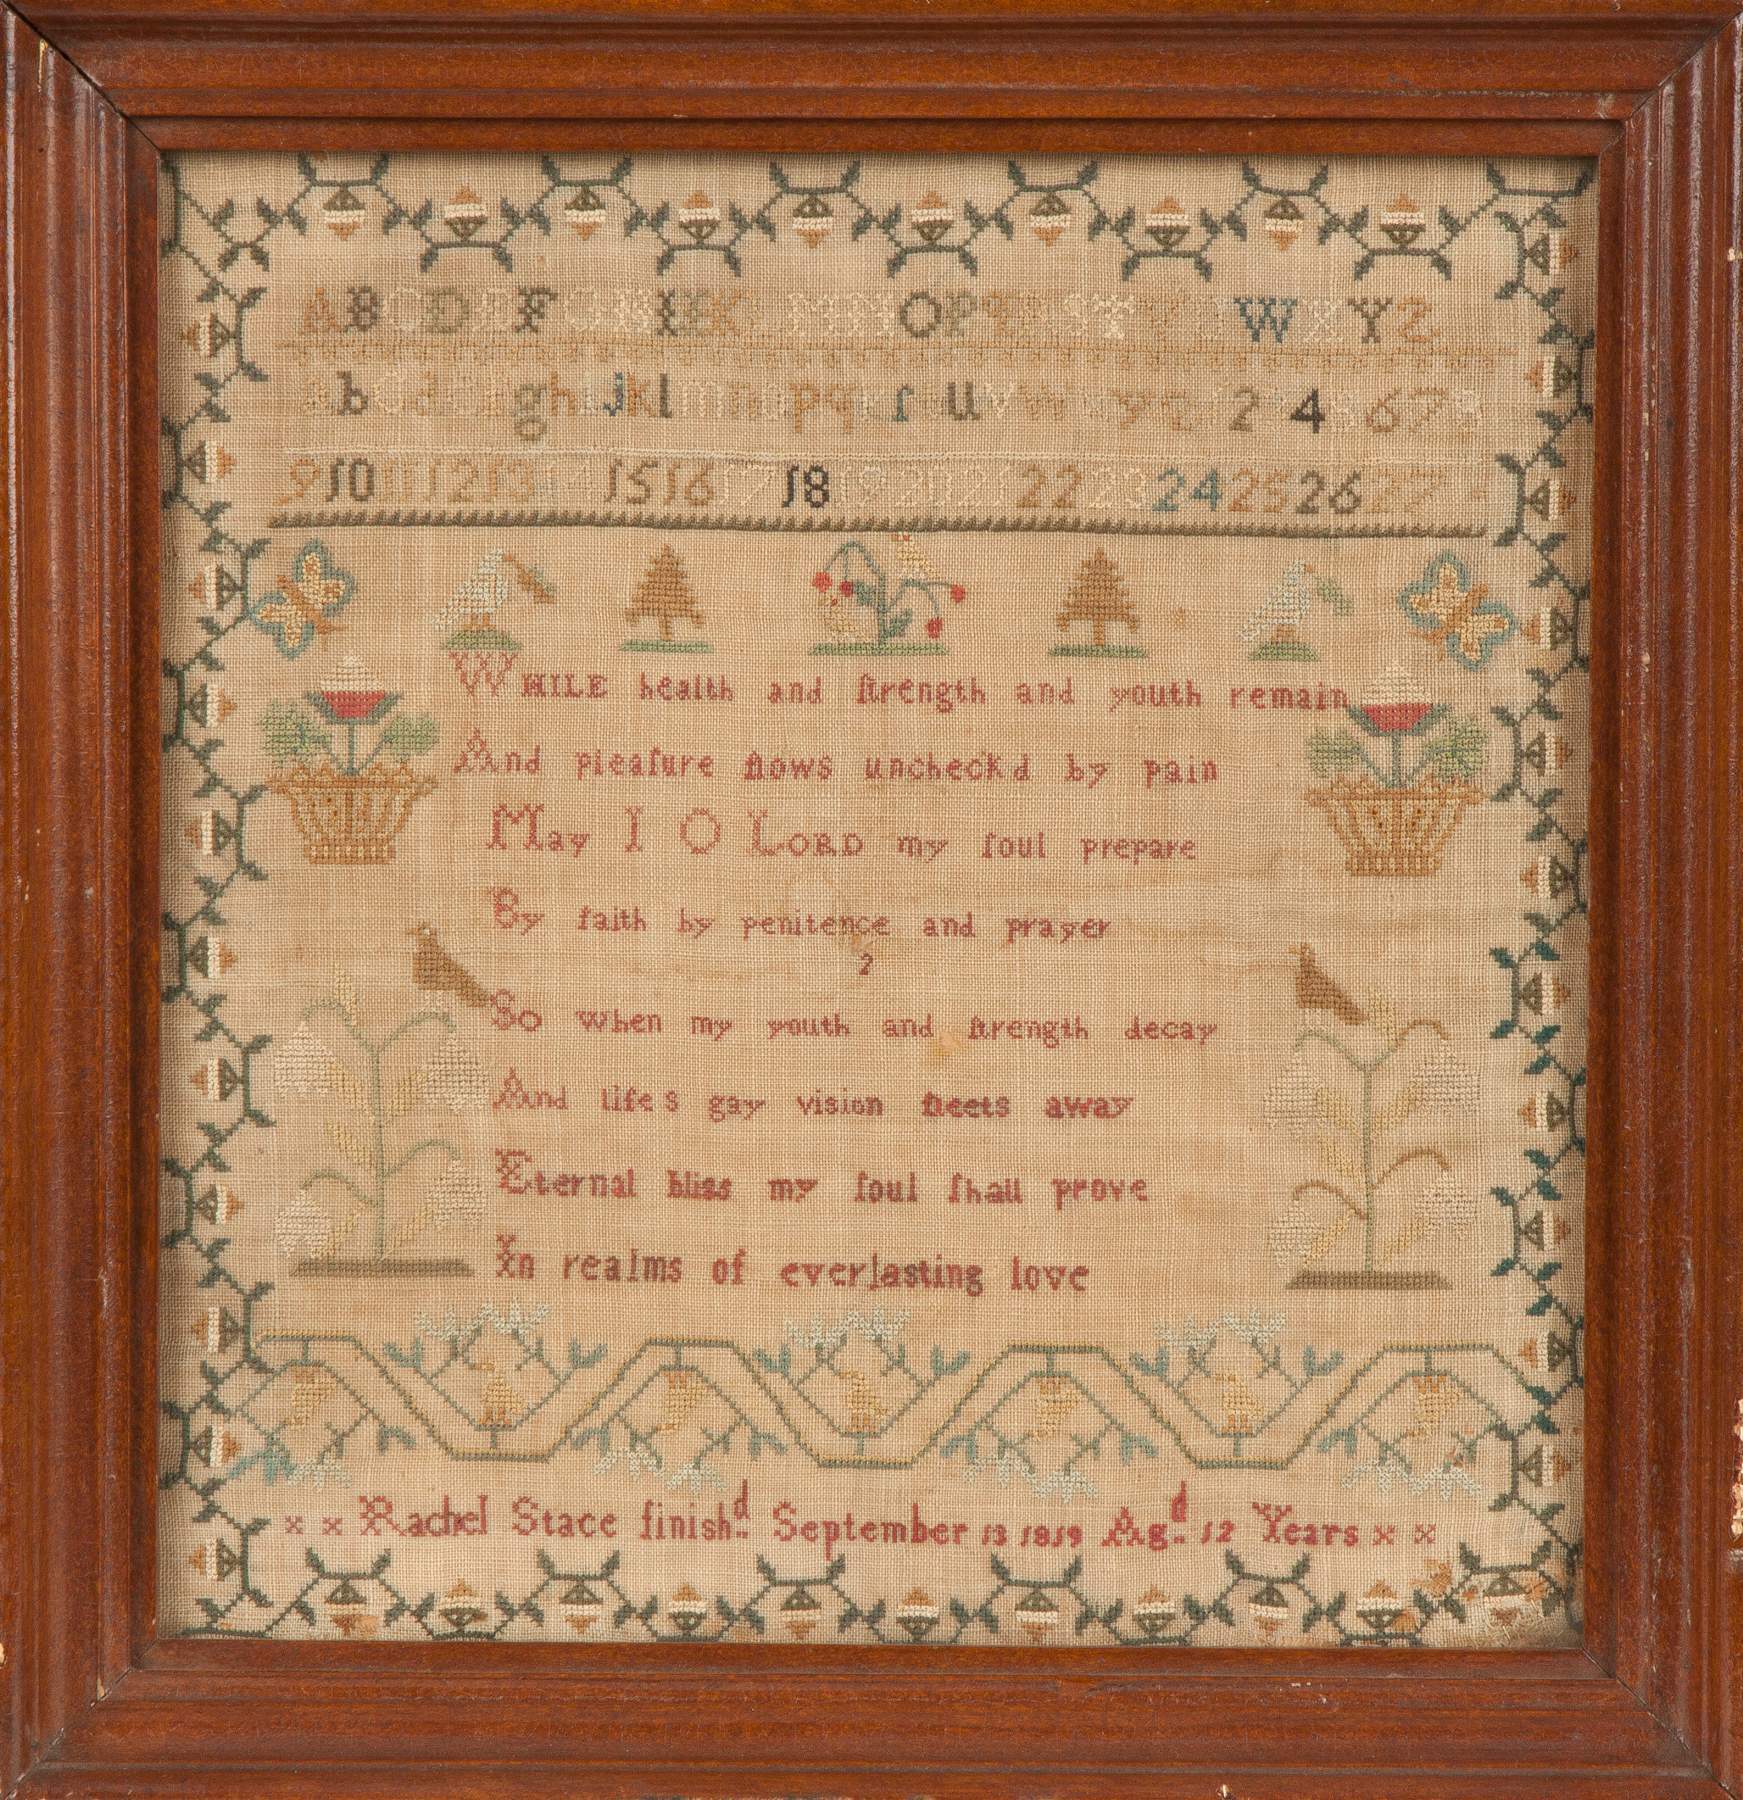 A B C D E F G H I J K L M N O P Q R S T V U W X Y Z
a b c d e f g h i j k l m n o p q r s u v w x y z 1 2 3 4 5 6 7 8
9 10 11 12 13 14 15 16 17 18 19 20 21 22 23 24 25 26 27
WHILE health and ſtrength and youth remain
And pleaſure flows uncheckd by pain
May I O LORD my ſoul prepare
By faith by penitence and prayer
2
So when my youth and ſtrength decay
And life s gay vision fleets away
Eternal bliss my ſoul ſhall prove
In realms of everlasting love
x x Rachel Stace finishd September 13 1819 Agd 12 Years x x